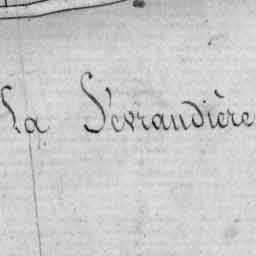 La Sevraudière